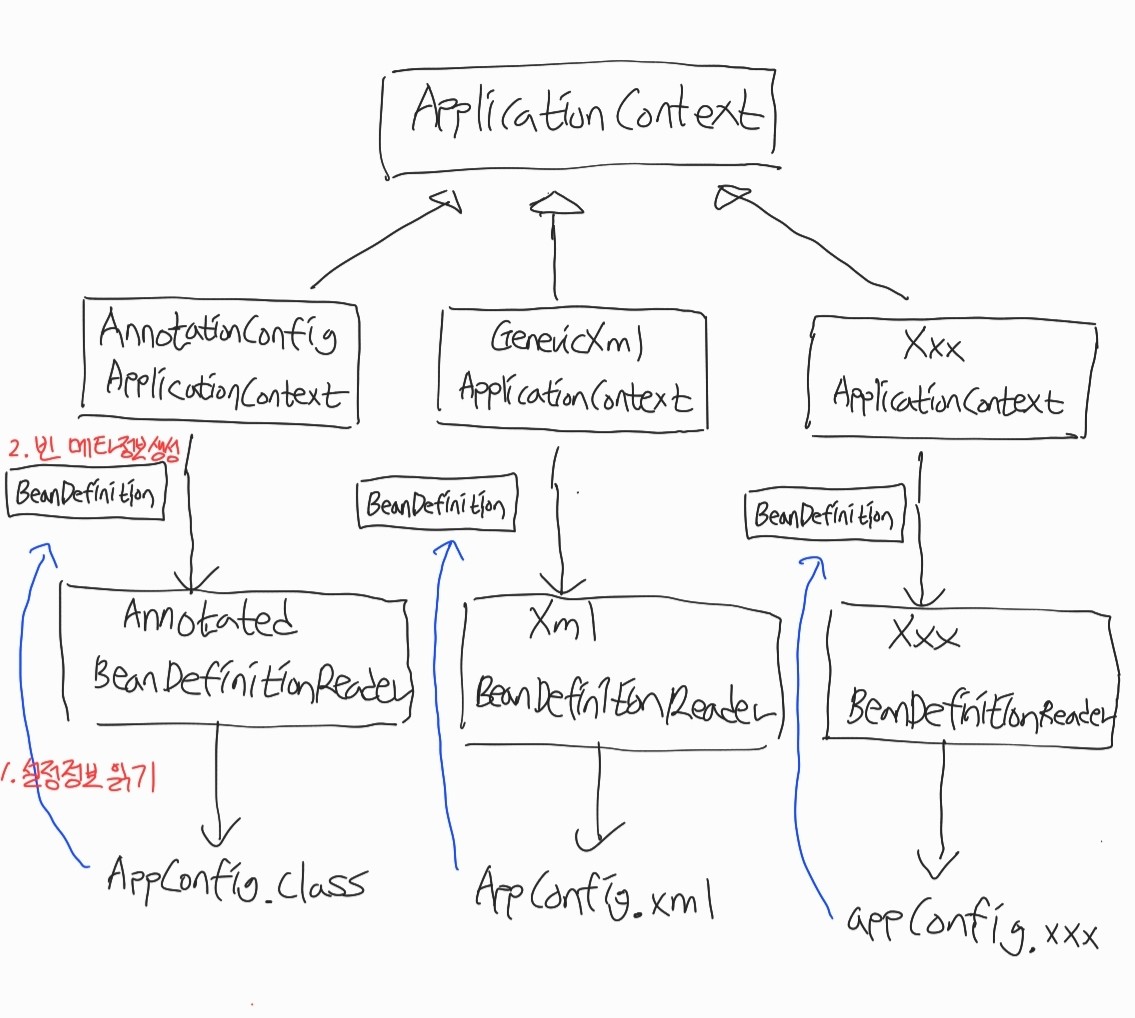 ApplicationContext
AnnotationConfig
ApplicationContext
GenericXml
ApplicationContext
Xxx
ApplicationContext
2. 빈 메타정보생성
BeanDefinition
BeanDefinition
BeanDefinition
Annotated
BeanDefinitionReader
Xml
BeanDefinitionReader
Xxx
BeanDefinitionReader
1. 설정정보 읽기
AppConfig.class
AppConfig.xml
appConfig.xxx